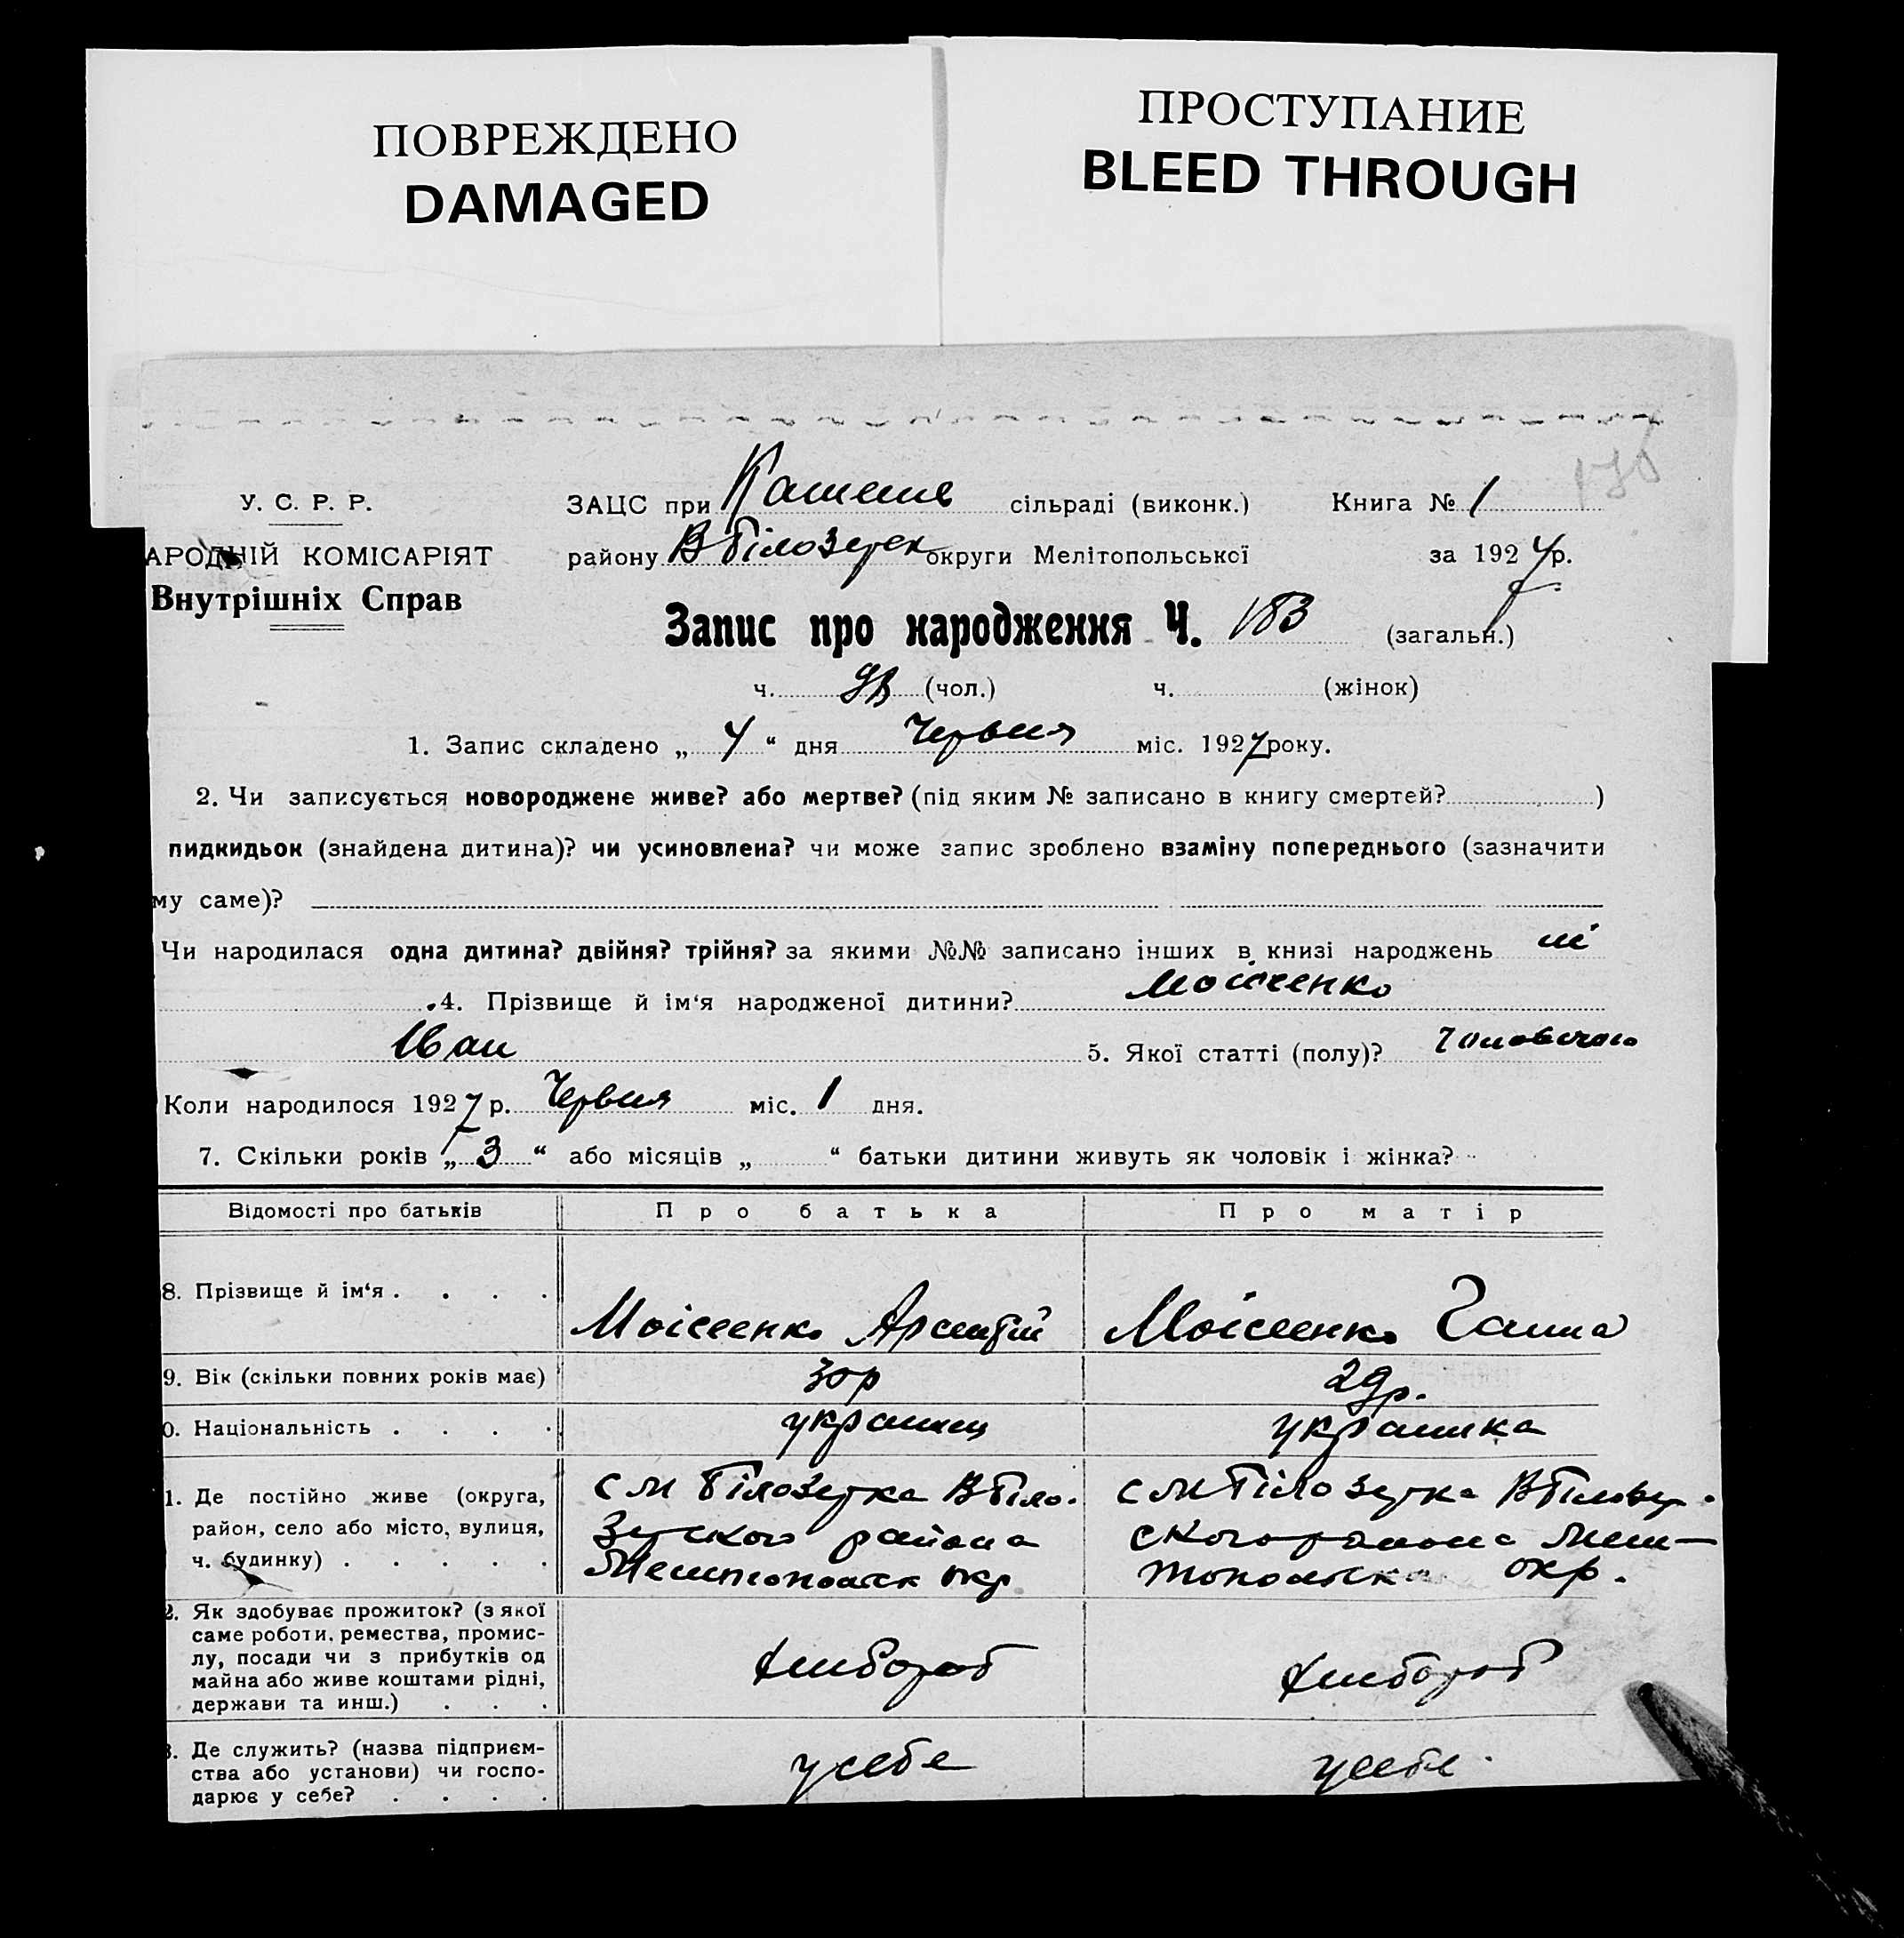 ПОВРЕЖДЕНО
DAMAGED
ПРОСТУПАНИЕ
BLEED THROUGH
У. С. Р. Р.
АРОДНІЙ КОМІСАРІЯТ
Внутрішніх Справ
ЗАЦС при сільраді (виконк.) Книга № 1
району В Білозерск округи Мелітопольської за 1927 р.
Запис про народження Ч. 183 (загальн.)
ч. 98 (чол.) ч. (жінок)
1. Запис складено „ 4 “ дня Червня міс. 1927 року.
2. Чи записується новороджене живе? або мертве? (під яким № записано в книгу смертей? )
пидкидьок (знайдена дитина)? чи усиновлена? чи може запис зроблено взаміну попереднього (зазначити
му саме)?
Чи народилася одна дитина? двійня? трійня? за якими №№ записано інших в книзі народжень ні
4. Прізвище й ім‘я народженої дитини? Моісеенко
Іван 5. Якої статті (полу)?
Коли народилося 1927 р. Червня міс. 1 дня.
7. Скільки років „ 3 “ або місяців „ “ батьки дитини живуть як чоловік і жінка?
Відомості про батьків Про батька Про матір
8. Прізвище й ім‘я . . . . Моісеенко Арсентій Моісеенко Ганна
9. Вік (скільки повних років має) 30р 29р.
0. Національність . . . . украинец украинка
1. Де постійно живе (округа,
район, село або місто, вулиця,
ч. будинку) . . . . .
с М Білозерка В Біло-
зерского района
Мелитопольск окр
с М Білозерка В Білозер-
ского района Мели-
топольска окр.
2. Як здобуває прожиток? (з якої
саме роботи, ремества, промис-
лу, посади чи з прибутків од
майна або живе коштами рідні,
держави та инш.) . . .
хлібороб хлібороб
3. Де служить? (назва підприєм-
ства або установи) чи госпо-
дарює у себе? . . . .
у себе у себе.